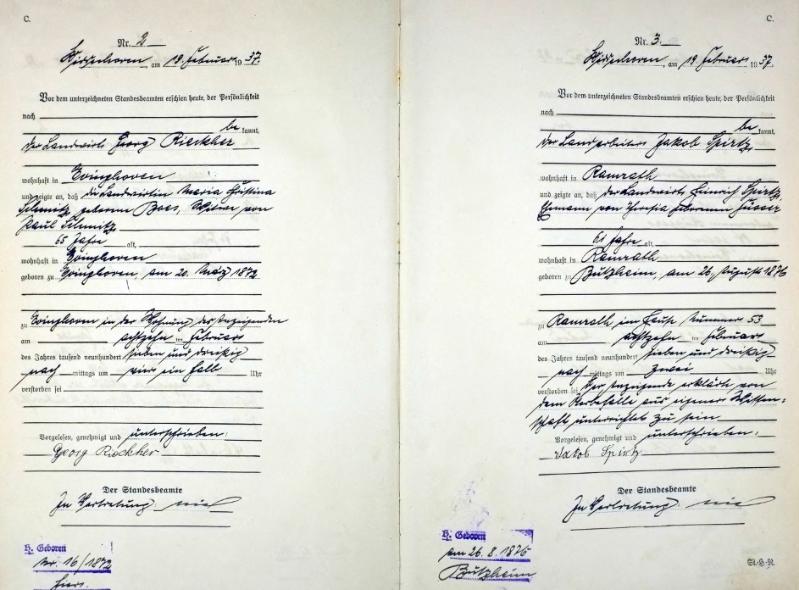 C.
Nr. 2
am 19. Februar 1937.
Vor dem unterzeichneten Standesbeamten erschien heute, der Persönlichkeit
nach
be kannt,
der Landwirt Georg Rieckher
wohnhaft in Evinghoven
und zeigte an, daß die Landwirtin Maria Christina
Schmitz geborene Broes, Witwe von
Paul Schmitz
65 Jahre alt,
wohnhaft in Evinghoven
geboren zu Evinghoven, am 20. März 1872
zu Evinghoven in der Wohnung des Anzeigenden
am achtzehn ten Februar
des Jahres tausend neunhundert sieben und dreißig
nach mittags um vier ein halb Uhr
verstorben sei
Vorgelesen, genehmigt und unterschrieben:
Georg Rieckher
Der Standesbeamte
In Vertretung
H. Geboren
Nr. 16/1872
hiers.
C.
Nr. 3.
am 19. Februar 1937.
Vor dem unterzeichneten Standesbeamten erschien heute, der Persönlichkeit
nach
be kannt,
der Landarbeiter Jakob Spirtz
wohnhaft in Ramrath
und zeigte an, daß der Landwirt Heinrich Spirtz,
Ehemann von geborenen
61 Jahre alt,
wohnhaft in Ramrath
geboren zu Butzheim, am 26. August 1876
zu Ramrath im Hause Nummer 53
am achtzehn ten Februar
des Jahres tausend neunhundert sieben und dreißig
nach mittags um zwei Uhr
verstorben sei Der Anzeigende erklärte von
dem Sterbefalle aus eigener Wissen-
schaft unterrichtet zu sein
Vorgelesen, genehmigt und unterschrieben:
Jakob Spirtz
Der Standesbeamte
In Vertretung
H. Geboren
am 26.8.1876
Butzheim
St.H.R.